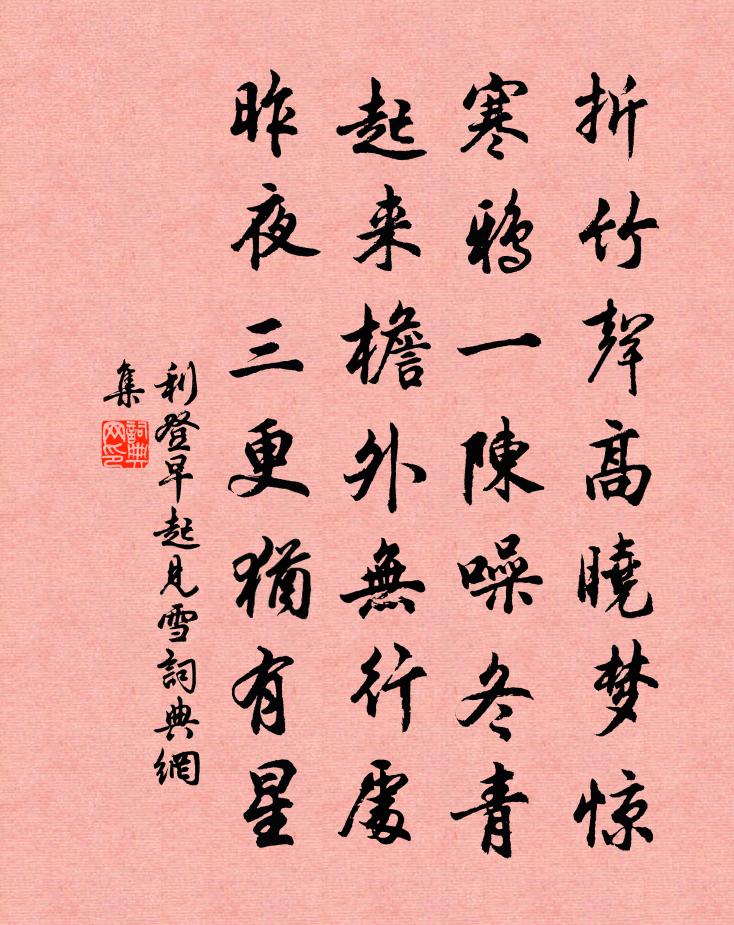 折竹聲高曉梦惊
寒鴉一陳噪冬青
起来檐外無行處
昨夜三更猶有星
利登早起見雪詞典網
集
詞典網印